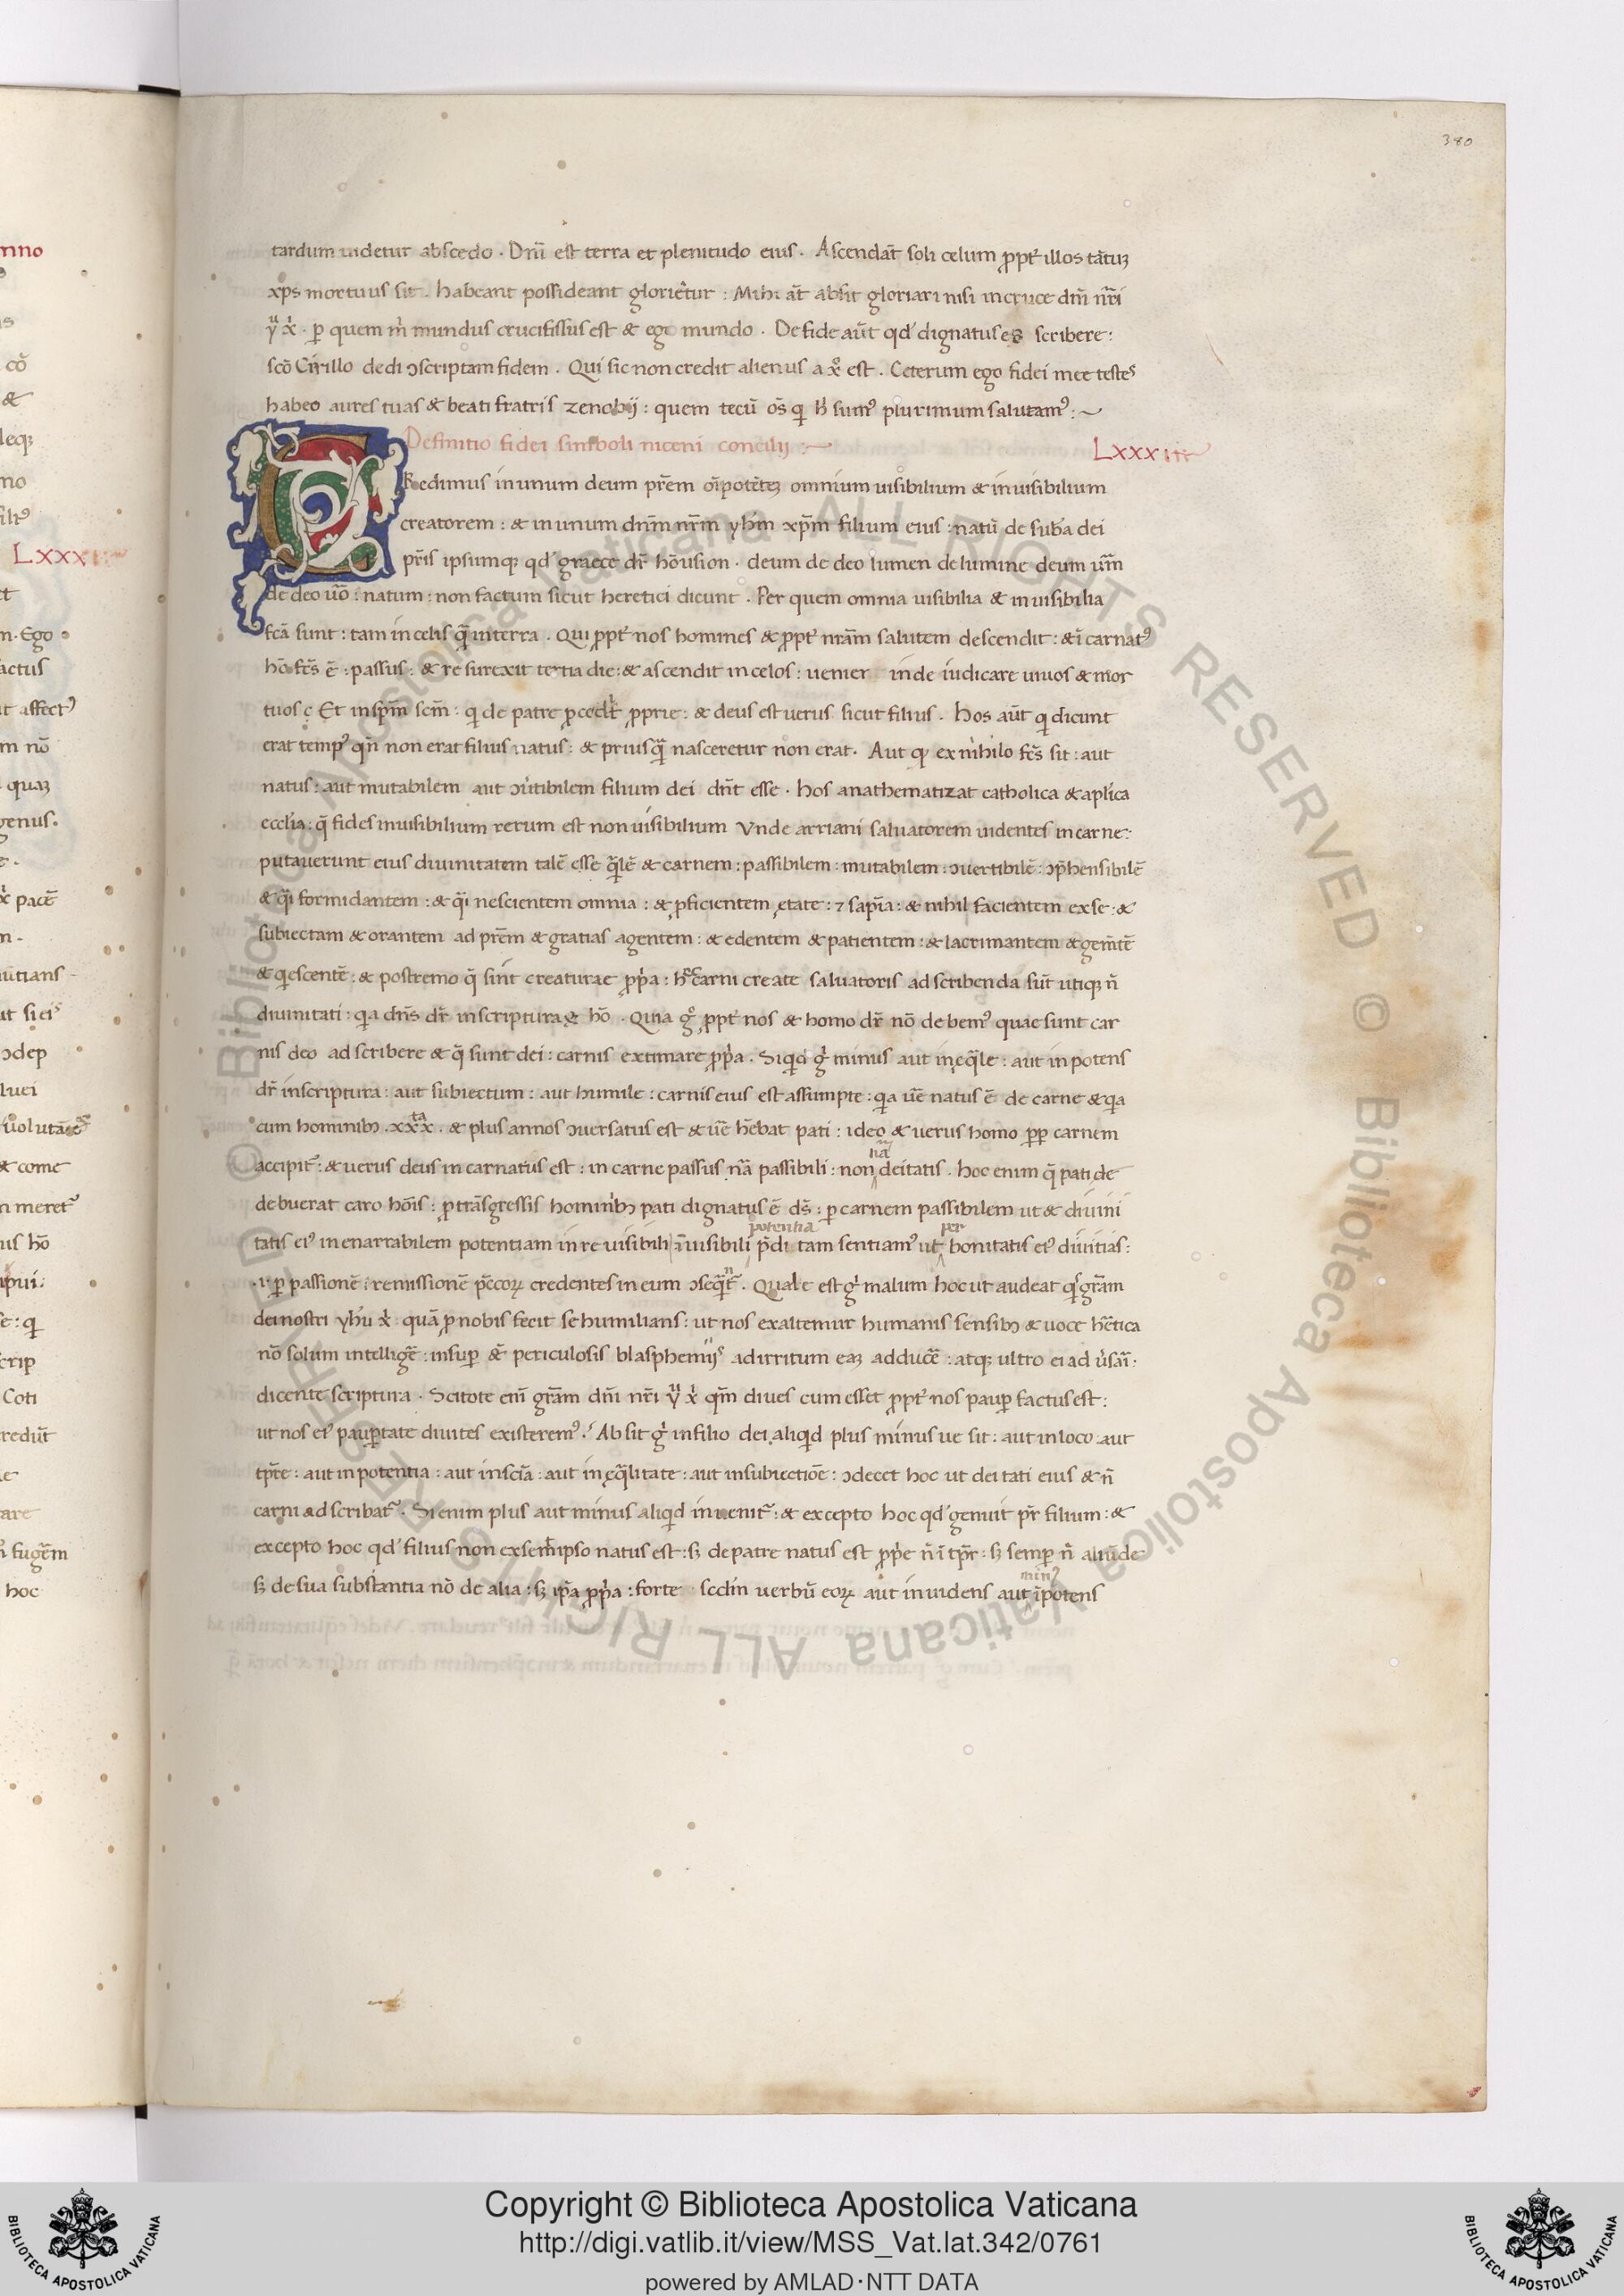 380
tardum uidetur abscedo. Dñi est terra et plenitudo eius. Ascendãt soli celum ꝓpt̃ illos tãtuꝫ
xp̃s mortuus sit. habeant possideant glorient̃ur: Mihi aũt absit gloriari nisi in cruce dñi nr̃i
per quem m̃ mundus crucifissus est & ego mundo. De fide aũt qd' dignatus es scribere:
sc̃o Cirillo dedi ↄscriptam fidem. Qui sic non credit alienus a xp̃o est. Ceterum ego fidei mee testes
habeo aures tuas & beati fratris zenobij: quem tecũ om̃s q̃ h̃ sumꝰ plurimum salutamꝰ:~
Definitio fidei simboli niceni concilij:~ LXXXIII
CRedimus in unum deum pr̃em oĩpotẽteꝫ omnium uisibilium & inuisibilium
creatorem: & in unum dnm̃ nr̃m yhm̃ xp̃m filium eius: natũ de suba dei
pr̃is ipsumqꝫ qd' graece dr̃ hõusion. deum de deo lumen de lumine deum uũm
de deo uõ: natum: non factum sicut heretici dicunt. Per quem omnia uisibilia & inuisibilia
fc̃a sunt: tam in celis q̃ in terra. Qui ꝓpt̃ nos homines & ꝓpt̃ nr̃am salutem descendit: & ĩcarnatꝰ
hõ fc̃s ẽ: passus: & resurexit tertia die: & ascendit in celos: uenier inde iudicare uiuos & mor
tuos ⁊ Et in sp̃m sc̃m: q̃ de patre ꝓcedit ꝓprie: & deus est uerus sicut filius. Hos aũt q̃ dicunt
erat tempꝰ qñ non erat filius natus: & priusq̃ nasceretur non erat. Aut qꝫ ex nihilo fc̃s sit: aut
natus: aut mutabilem aut ↄũtibilem filium dei dñt esse. hos anathematizat catholica & aplica
ecclia: q̃ fides inuisibilium rerum est non uisibilium Vnde arriani saluatorem uidentes in carne:
putauerunt eius diuinitatem talẽ esse q̃lẽ & carnem: passibilem: mutabilem: ↄuertibilẽ: ↄp̃hensibilẽ
& q̃i formidantem: & q̃i nescientem omnia: & ꝓficientem ętate: ⁊ sapĩa: & nihil facientem ex se: &
subiectam & orantem ad pr̃em & gratias agentem: & edentem & patientem: & lacrimantem & gemẽtẽ
& q̃escentẽ: & postremo q̃ sint creaturae ꝓp̃a: hẽc carni create saluatoris adscribenda sũt utiqꝫ ñ
diuinitati: q̃a dñs dr̃ in scriptura & hõ. Quia gͦ ꝓpt̃ nos & homo dr̃ nõ debemꝰ quae sunt car
nis deo adscribere & q̃ sunt dei: carnis extimare ꝓp̃a. Siqd g̃ minus aut inęq̃le: aut inpotens
dr̃ in scriptura: aut subiectum: aut humile: carnis eius est assumpte: q̃a uẽ natus ẽ de carne & q̃a
cum hominibꝫ xxx ta. & plus annos ↄuersatus est & uẽ h̃ebat pati: ideo & uerus homo ꝓp carnem
accipit̃: & uerus deus in carnatus est: in carne passus nã passibili: non nã deitatis. hoc enim q̃ pati de
debuerat caro hõis: ꝓ trãsgressis hominibꝫ pati dignatus ẽ ds̃: ꝑ carnem passibilem ut & diuini
tatis eiꝰ inenarrabilem potentiam in re uisibili ĩuisibili potentia p̃di tam sentiamꝰ ut per bonitatis eiꝰ diuitias:
ut ꝑ passionẽ: remissionẽ pc̃coꝝ credentes in eum ↄseq̃nt̃. Quale est g̃ malum hoc ut audeat q̃s gr̃am
dei nostri yhũ xp̃i quã ꝓ nobis fecit se humilians: ut nos exaltemur humanis sensibꝫ & uoce h̃etica
nõ solum intelligẽ: insuꝑ & periculosis blasphemijs ad irritum eaꝫ adducẽ: atqꝫ ultro ei aduersãi:
dicente scriptura. Scitote eni gr̃am dñi nr̃i qm̃ diues cum esset ꝓpt̃ nos pauꝑ factus est:
ut nos eiꝰ pauꝑtate diuites existeremꝰ. Absit g̃ in filio dei aliqd plus minus ue sit: aut in loco aut
tp̃re: aut in potentia: aut in scĩa: aut in ęq̃litate: aut in subiectiõe: ↄdecet hoc ut deitati eius & ñ
carni adscribat̃. Si enim plus aut minus aliqd inuenit̃: & excepto hoc qd' genuit pr̃ filium: &
excepto hoc qd' filius non ex semetipso natus est: sꝫ de patre natus est ꝓp̃e ñ ĩ tp̃r: sꝫ semꝑ ñ aliũde
sꝫ de sua substantia nõ de alia: sꝫ ip̃a ꝓp̃a: forte scdm uerbũ eoꝝ aut inuidens aut minꝰ ĩpotens
Copyright © Biblioteca Apostolica Vaticana
http://digi.vatlib.it/view/MSS_Vat.lat.342/0761
powered by AMLAD·NTT DATA